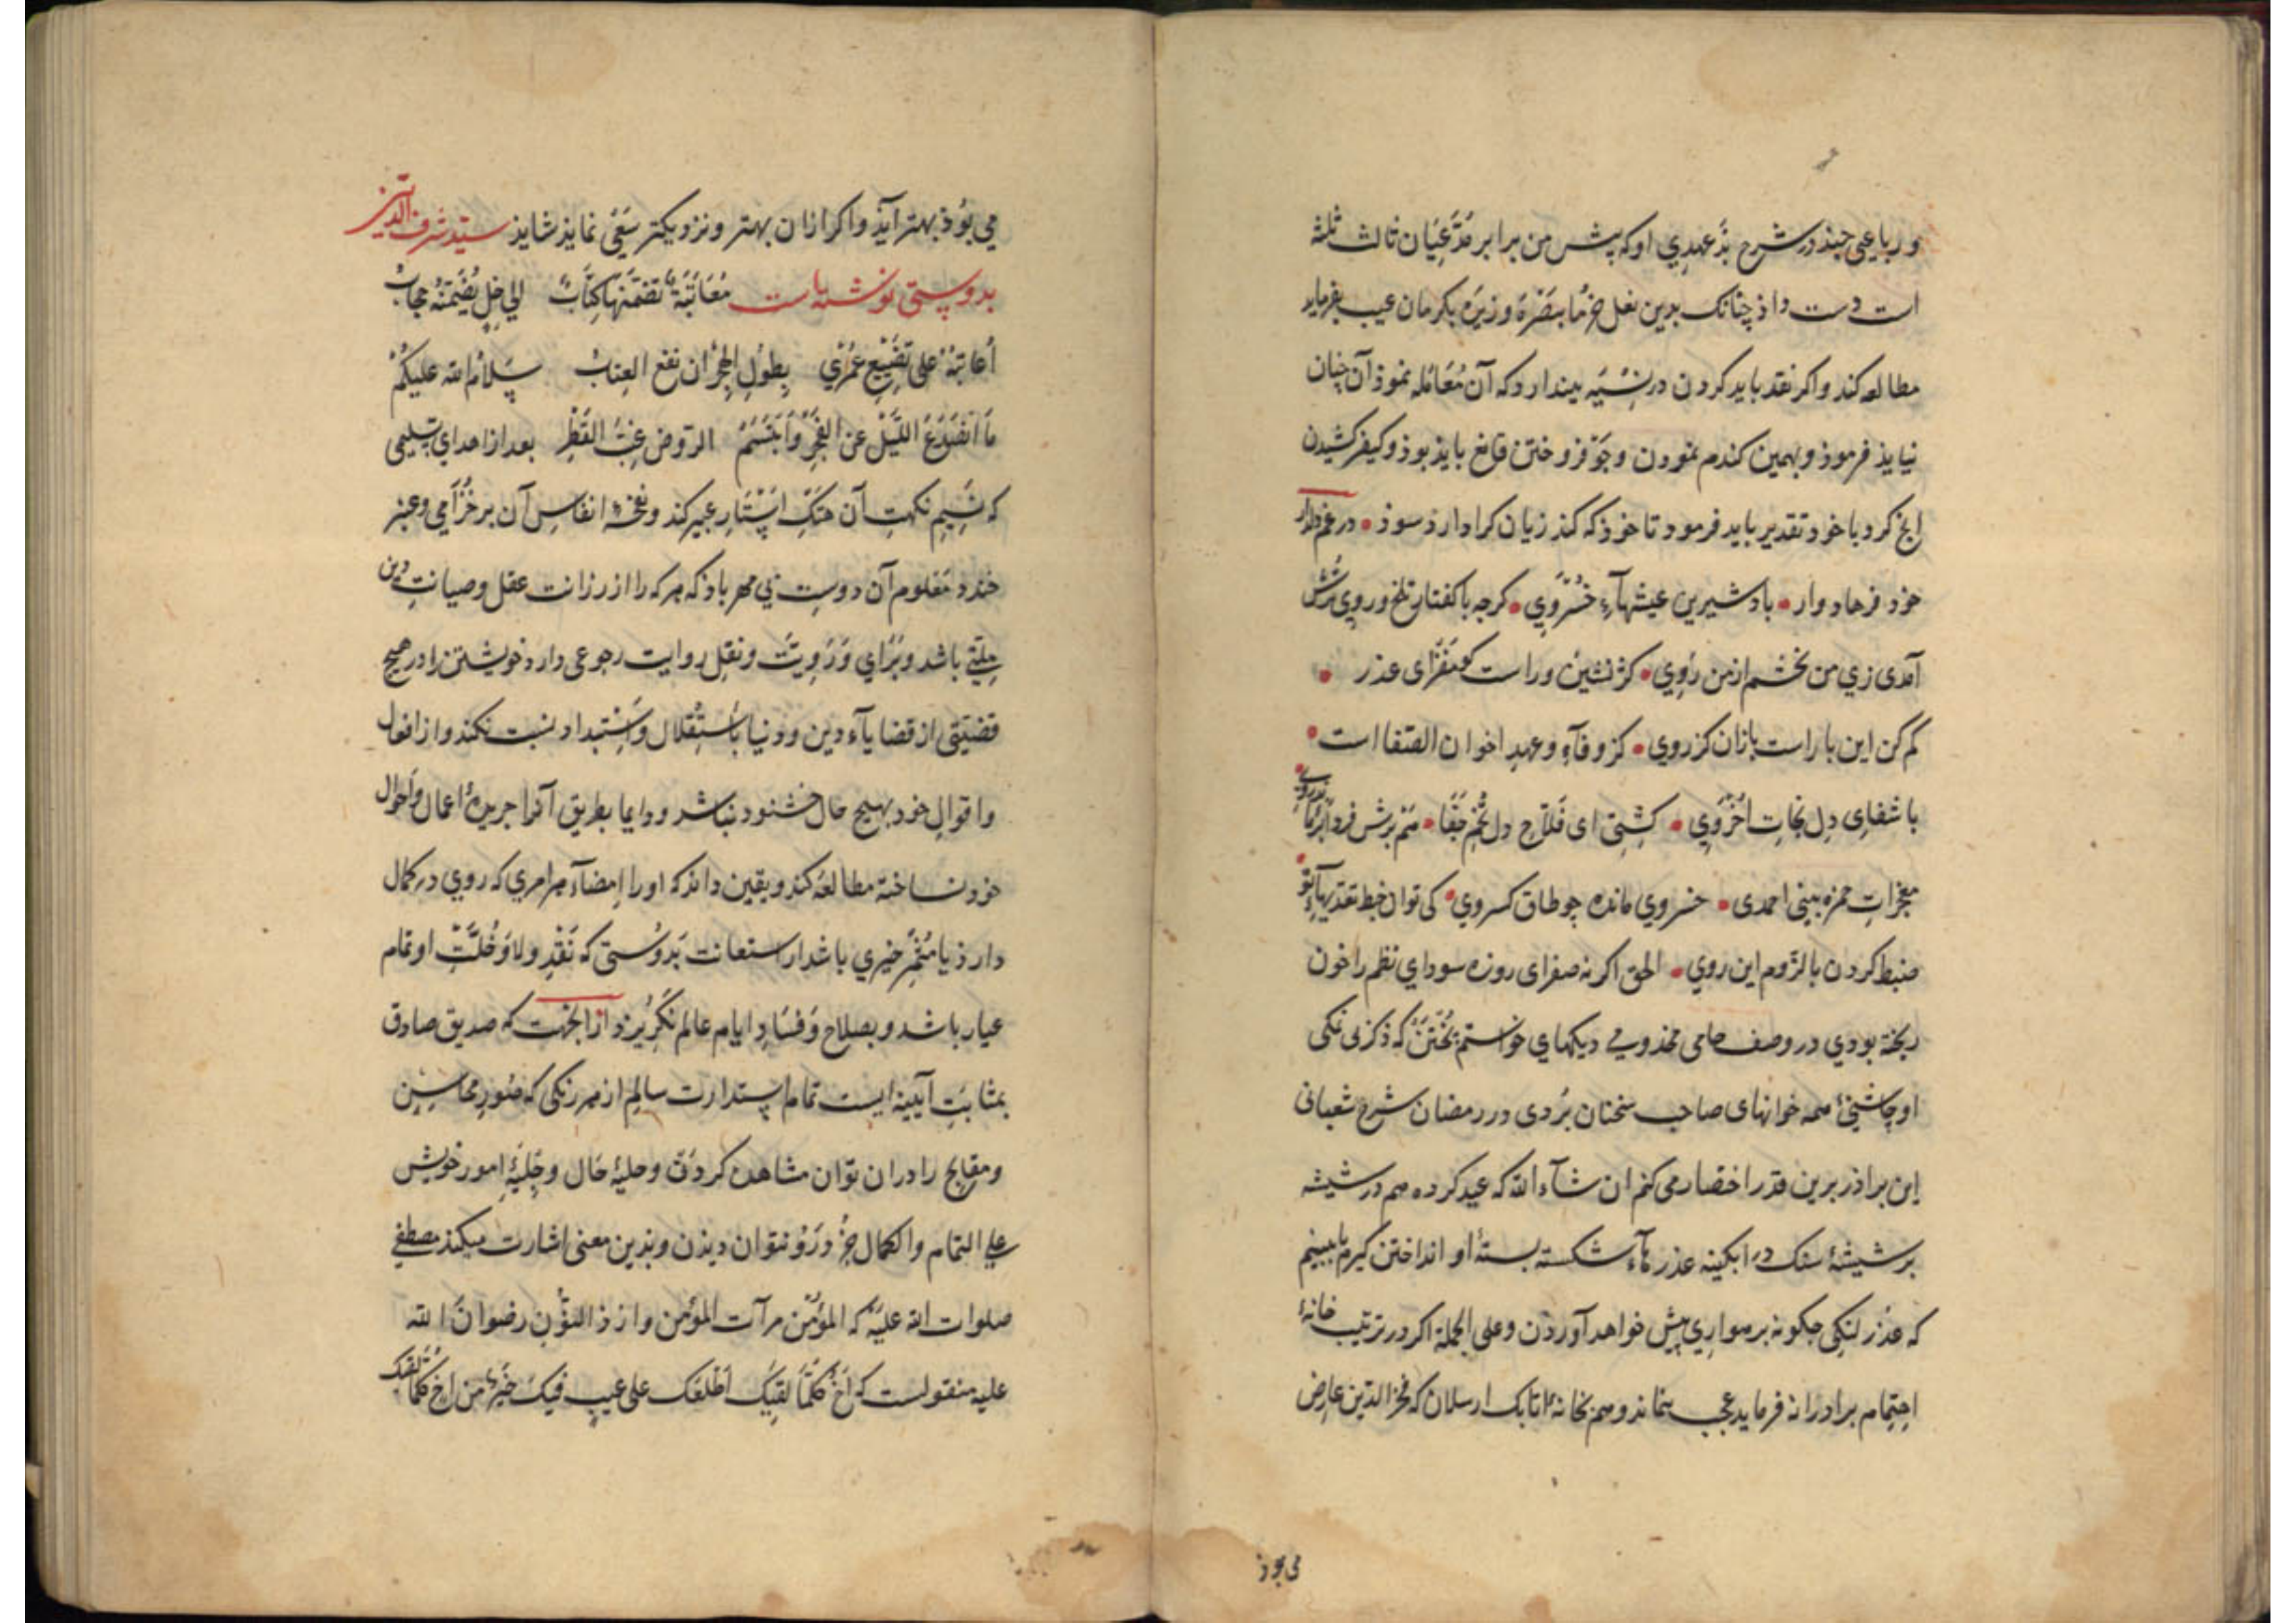 و رباعیی چند در شرح بد عهدی او که پیش من برابر مدعیان ثالث ثلثه
است دست داذ چنانک بدین نعل خرما ببصره و زیره بکرمان عیب بفرماید
مطالعه کند و اکر نقد باید کردن در نسیه بیندارد که آن معامله نموذ آن چنان
نیایذ فرموذ و بهمین کندم نمودن و جو فروختن قانع بایذ بوذ و کیفر کشیدن
انج کرد با خود تقدیر باید فرمود تا خوذ که کند زیان کرا دارذ سوذ • در غم دلدار
خود فرهاد وار • باد شیرین عیشهاء خسروی • کرجه با کفتار تلخ و روی ترش
آمدی زی من بخشم از من رَوی • کژ نشین و راست کو عذر •
کم کن این بار است بازان کزروی • کز وفآء و عهد اخوان الصفا است •
با شفای دل نجات اخروی • کشتی ای فلاح دل تخم جفا • هم برش فردا
معجزات حمزه بینی احمدی • خسروی مانده چو طاق کسروی • کی توان خبط تقدیرهآء تو
ضبط کردن با لزوم این روی • الحق اکر نه صفرای روزه سودای نظم را خون
ریخته بودی در وصف خامی مخذومی دیکهای خواستم بختن که ذکر بی نمکی
او چاشنیء همه خوانهای صاحب سخنان بُردی در رمضان شرح شعبانی
این براذر برین قدر اختصار می کنم ان شآء الله که عید کرده هم در شیشه
بر شیشهٔ سنک در ابکینه عذرهآء شکسته بستهٔ او انداختن کیرم تا ببینم
که عذر لنکی چکونه برهواری پیش خواهد آوردن و علی الجملة اکر در ترتیب خانهٔ
اهتمام برادرانه فرماید عجب نماند و هم بخانهٔ اتابک ارسلان که فخر الدین عارض
می بوذ
می بوذ بهتر آیذ و اکر ازان بهتر و نزدیکتر سَعْیی نمایذ شایذ سید شرف الدین
بدوستی نوشته است مُعَاتَبَةٌ تضمّنها کتابٌ الی خلٍ یُضَمّنُهُ
أعاتبه علی تضییع عمری بطول الهجران نفع العتاب سلام الله علیکم
ما انصدع اللیل عن الفجر و ابتسم الروض غبّ القطر بعد از اهدای تسلیمی
که نسیم نکهت آن هتک استار عبیر کند و نفحهٔ انفاس آن بر خزامی و عنبر
خندد معلوم آن دوست بی مهر باد که هر که را از رزانت عقل و صیانت دین
حلیتی باشد و برای و رَویّت و نقل روایت رجوعی دارد خویشتن را در هیچ
قضیتی از قضایآء دین و دنیا باستقلال و استبداد نسبت نکند و از افعال
و اقوال خود بهیچ حال خشنود نباشد و دایما بطریق آنرا جریدهٔ اعمال و احوال
خود ساخته مطالعه کند و یقین داند که او را امضآء هر امری که روی در کمال
دارذ یا مثمر خیری باشد از استعانت بدوستی که نقد ولا و خُلّت او تمام
عیار باشد و بصلاح و فساد ایام عالم نکریزد از انجهت که صدیق صادق
بمثابت آیینه ایست تمام استدارت سالم از هر رنکی که صُور محاسن
و مقابح را دران توان مشاهده کردن و حلیهٔ حال و جلیهٔ امور خویش
علی التمام و الکمال جز درو نتوان دیذن و بذین معنی اشارت میکند مصطفی
صلوات الله علیه که المؤمن مرآت المؤمن و از ذ النون رضوان الله
علیه منقولست که اخ کلما لقیک اطلعک علی عیب فیک خیر من اخ کلما لقیک